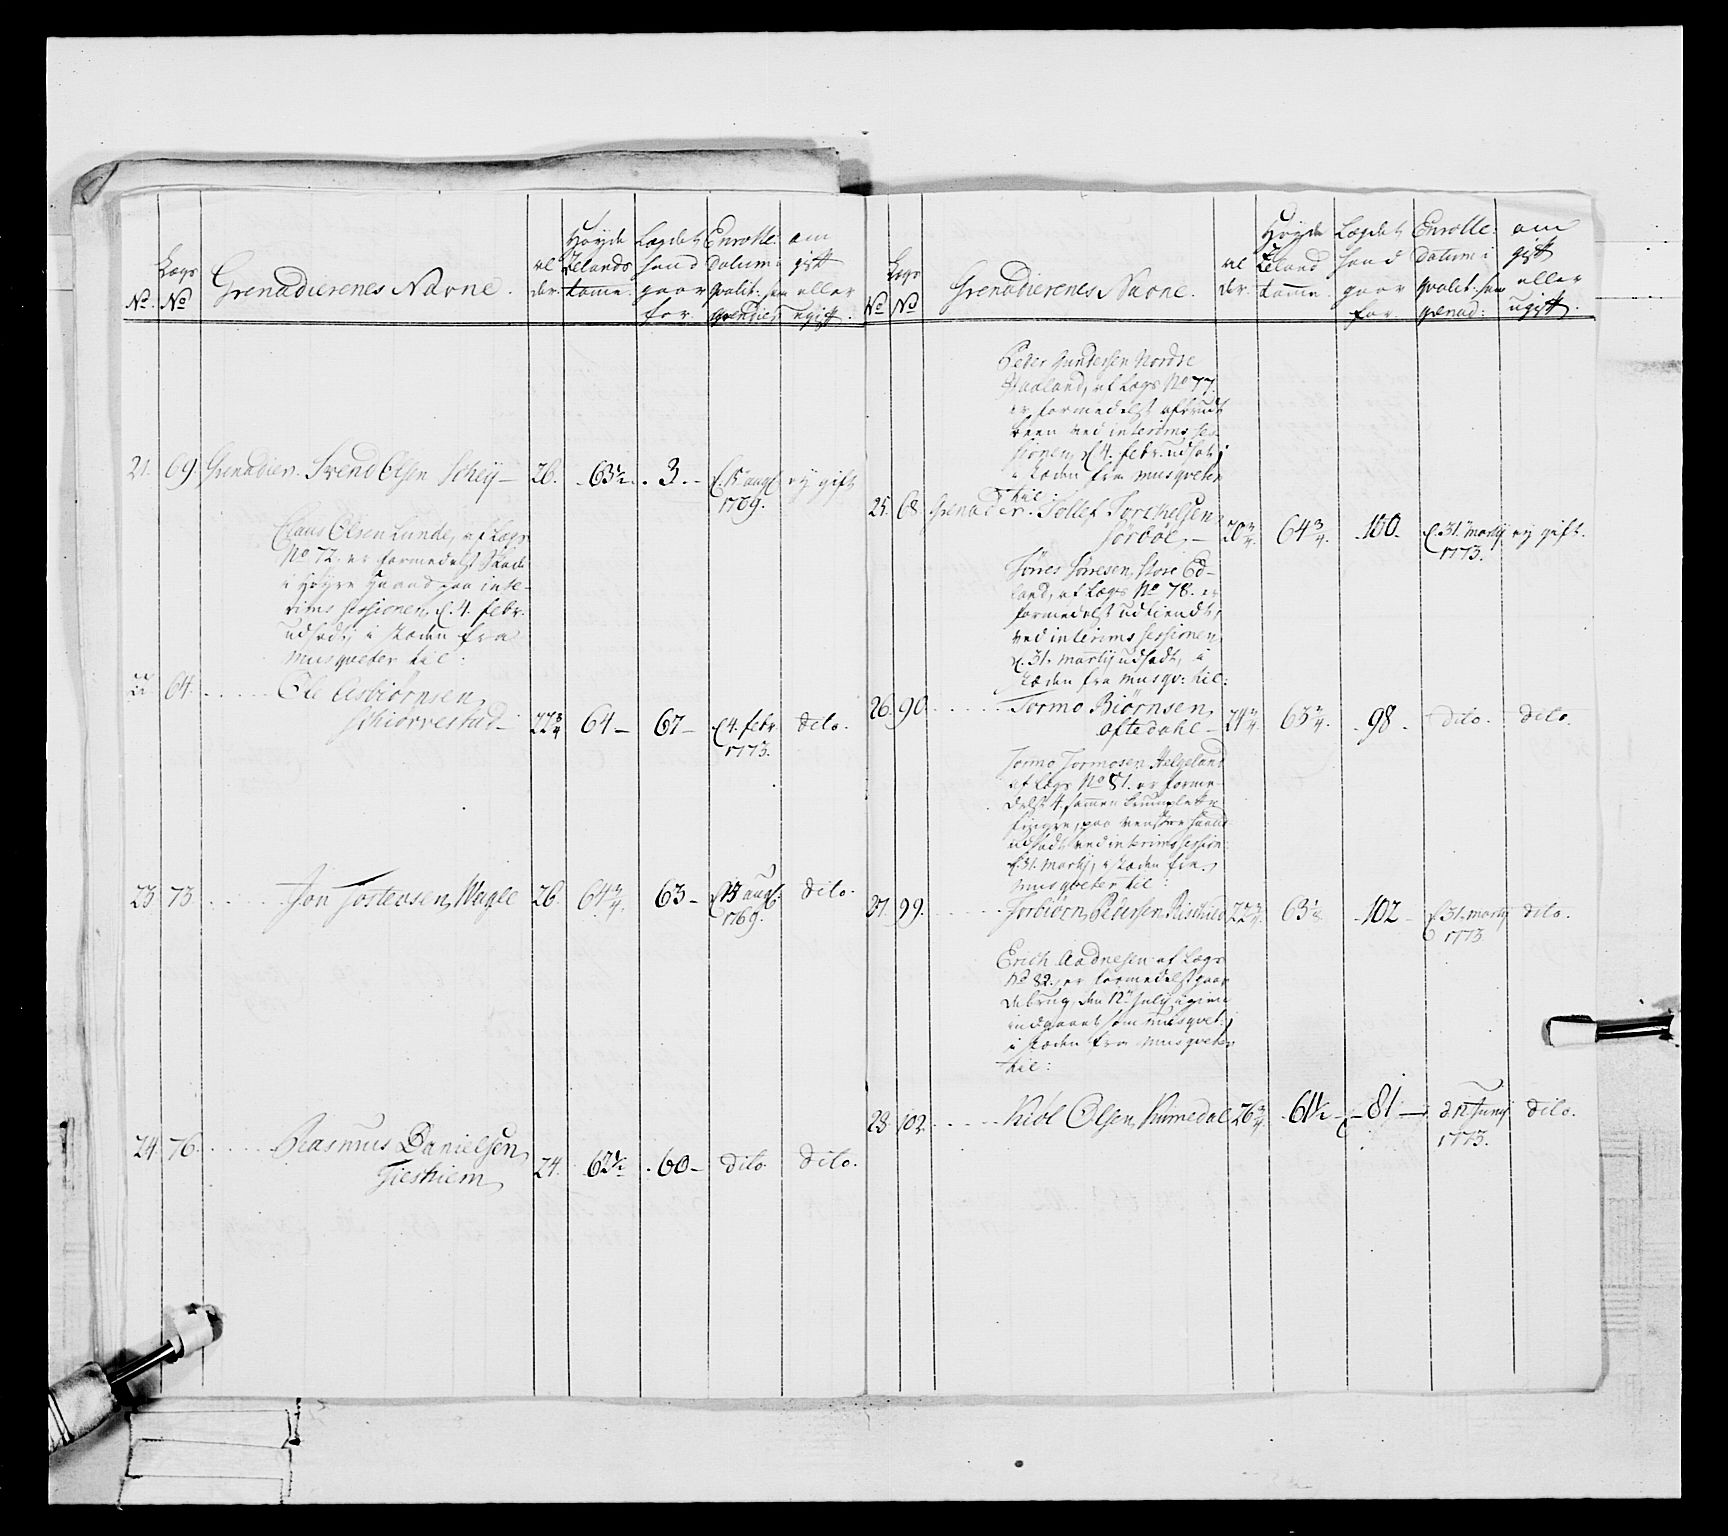 No.
Lægs No
Grenadierenes Navne.
al der.
Høyde Zelands tomme.
Lægdet hand gaar for
Enrolle: Datum i qvalit: som
om gift eller ugift.
21. 69 Grenadier. Svend Olsen Scheij — 26. 63½. 3. — d. 15 augl 1769. ej gift
Claus Olsen Lunde, af Lægs
No 72. er formedelst Skade
i høyre Haand paa inte-
rims sessionen d. 4. febr.
udsadt, i stæden fra
Musqveter til:
22 64. Ole Asbiørnsen
Schiorvestad — 22¾ 64 — 67 — d 4. febr 1773. dito.
23 73. Jon Jostensen Wagle 26. 64¾. 63 — d 15 augl: 1769. dito.
24. 76. Rasmus Danielsen
24. 62½ 60 — dito dito.
No
Lægs No
Grenadierenes Navne.
al der.
Høyde Zeland tomme.
Lægdet hand gaar for
Enrolle: Datum i qvalit: som grenad:
om gift eller ugift.
Peder Gundersen Nordre
Haaland, af Lægs No 77.
er formedelst afbrudt
been ved interims ses-
sionen d 4. febr. udsat;
i stæden fra musqveter
til:
25. 68. Grenadier. Tollef Torchelsen
Sørbøe, — 20¾. 64¾. 100. d. 31 martij 1773. ej gift.
Tørres Tørresen, store Ed-
land, af Lægs No 78. er
formedelst udtiendt,
ved interims sessionen
d. 31. martij udsadt, i
stæden fra Musqv: til:
26. 90. Tormo Biørnsen
Oftedahl — 24¾. 63¾. 98. dito. dito.
Tormo Tormosen Helgeland
af Lægs No 81. er forme-
delst 4. sammen
fingre, paa venstre haand
udsadt ved interims session
d. 31. martij, i stæden fra
Musqveter til:
27. 99. Torbiørn Pedersen 22¾. 63⅛. 102 — d 31. martij 1773. dito.
Erich Aadnesen af Lægs
No 82. er formedelst gaar-
debrug, den 12te
indgaaet som musqvet:
i stæden fra Musqveter
til:
28. 102. Kiøl Olsen Rimedal 26¾. 61½ — 81 — d. 12 Junij 1773. dito.